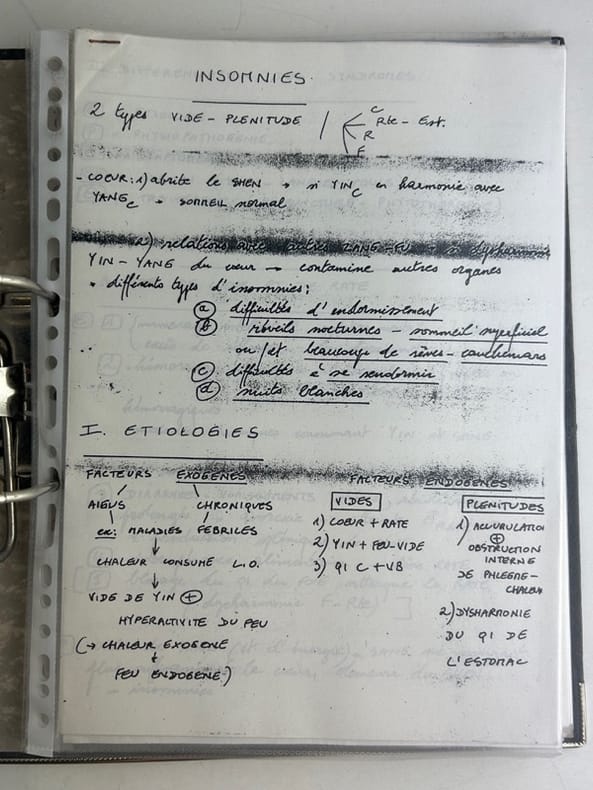 INSOMNIES.
2 types VIDE - PLENITUDE / C
Rte - Est.
R
F
- COEUR : 1) abrite le SHEN → si YIN C en harmonie avec
YANG C → SOMMEIL normal
2) relations avec autres ZANG-FU → si dysharmonie
YIN - YANG du coeur → contamine autres organes
* différents types d'insomnies :
a difficultés d'endormissement
b réveils nocturnes - sommeil superficiel
ou/et beaucoup de rêves - cauchemars
c difficultés à se rendormir
d nuits blanches
I. ETIOLOGIES
FACTEURS EXOGENES
AIGUS CHRONIQUES
ex: MALADIES FEBRILES
↓
CHALEUR CONSUME L.O.
↓
VIDE DE YIN ⊕
HYPERACTIVITE DU FEU
(→ CHALEUR EXOGENE
+
FEU ENDOGENE)
FACTEURS ENDOGENES
VIDES
1) COEUR + RATE
2) YIN + FEU-VIDE
3) QI C + VB
PLENITUDES
1) ACCUMULATIO
⊕
OBSTRUCTION
INTERNE
DE PHLEGME-
CHALEUR
2) DYSHARMONIE
DU QI DE
L'ESTOMAC